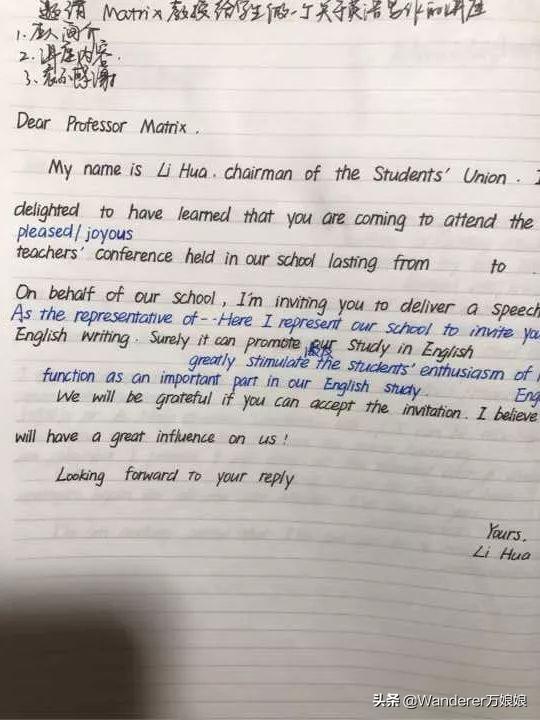 邀请 Matrix 教授给学生做一个关于英语写作的讲座
1.个人简介
2.讲座内容.
3.表示感谢
Dear Professor Matrix.
My name is Li Hua. chairman of the Students' Union. I
delighted to have learned that you are coming to attend the
pleased/ joyous
teachers' conference held in our school lasting from to
On behalf of our school, I'm inviting you to deliver a speech
As the representative of -- Here I represent our school to invite you
English writing. Surely it can promote our study in English
greatly stimulate the students' enthusiasm of
function as an important part in our English study. Eng
We will be grateful if you can accept the invitation. I believe
will have a great influence on us!
Looking forward to your reply
Yours.
Li Hua
头条 @Wanderer万娘娘